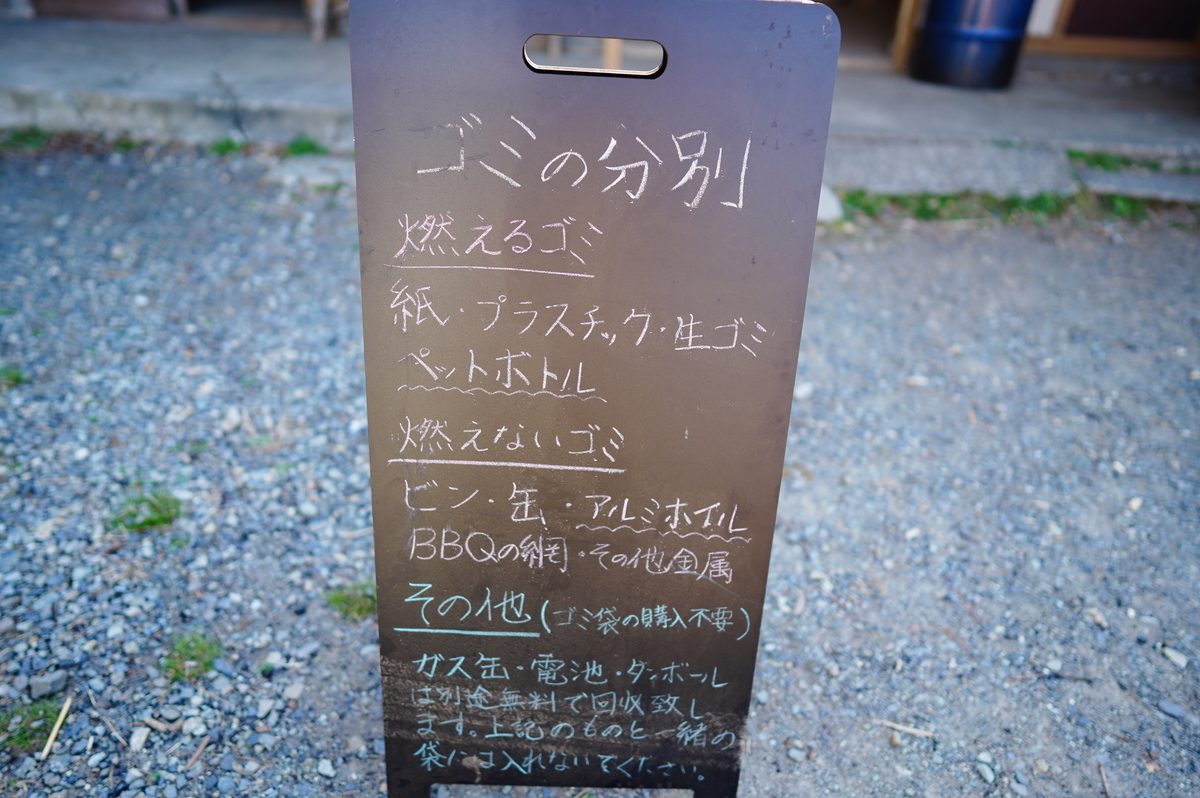 ゴミの分別
燃えるゴミ
紙・プラスチック・生ゴミ
ペットボトル
燃えないゴミ
ビン・缶・アルミホイル
BBQの網・その他金属
その他(ゴミ袋の購入不要)
ガス缶・電池・ダンボール
は別途無料で回収致し
ます。上記のものと一緒の
袋には入れないでください。